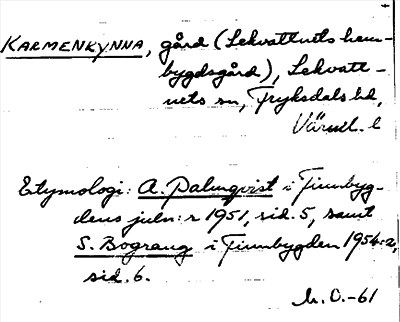 KARMENKYNNA, gård (Lekvattnets hem-
bygdsgård), Lekvatt-
nets sn, Fryksdals hd,
Värml. l
Etymologi: A. Palmqvist i Finnbyg-
dens juln:r 1951, sid. 5, samt
S. Bograng i Finnbygden 1954:2,
sid. 6.
-61